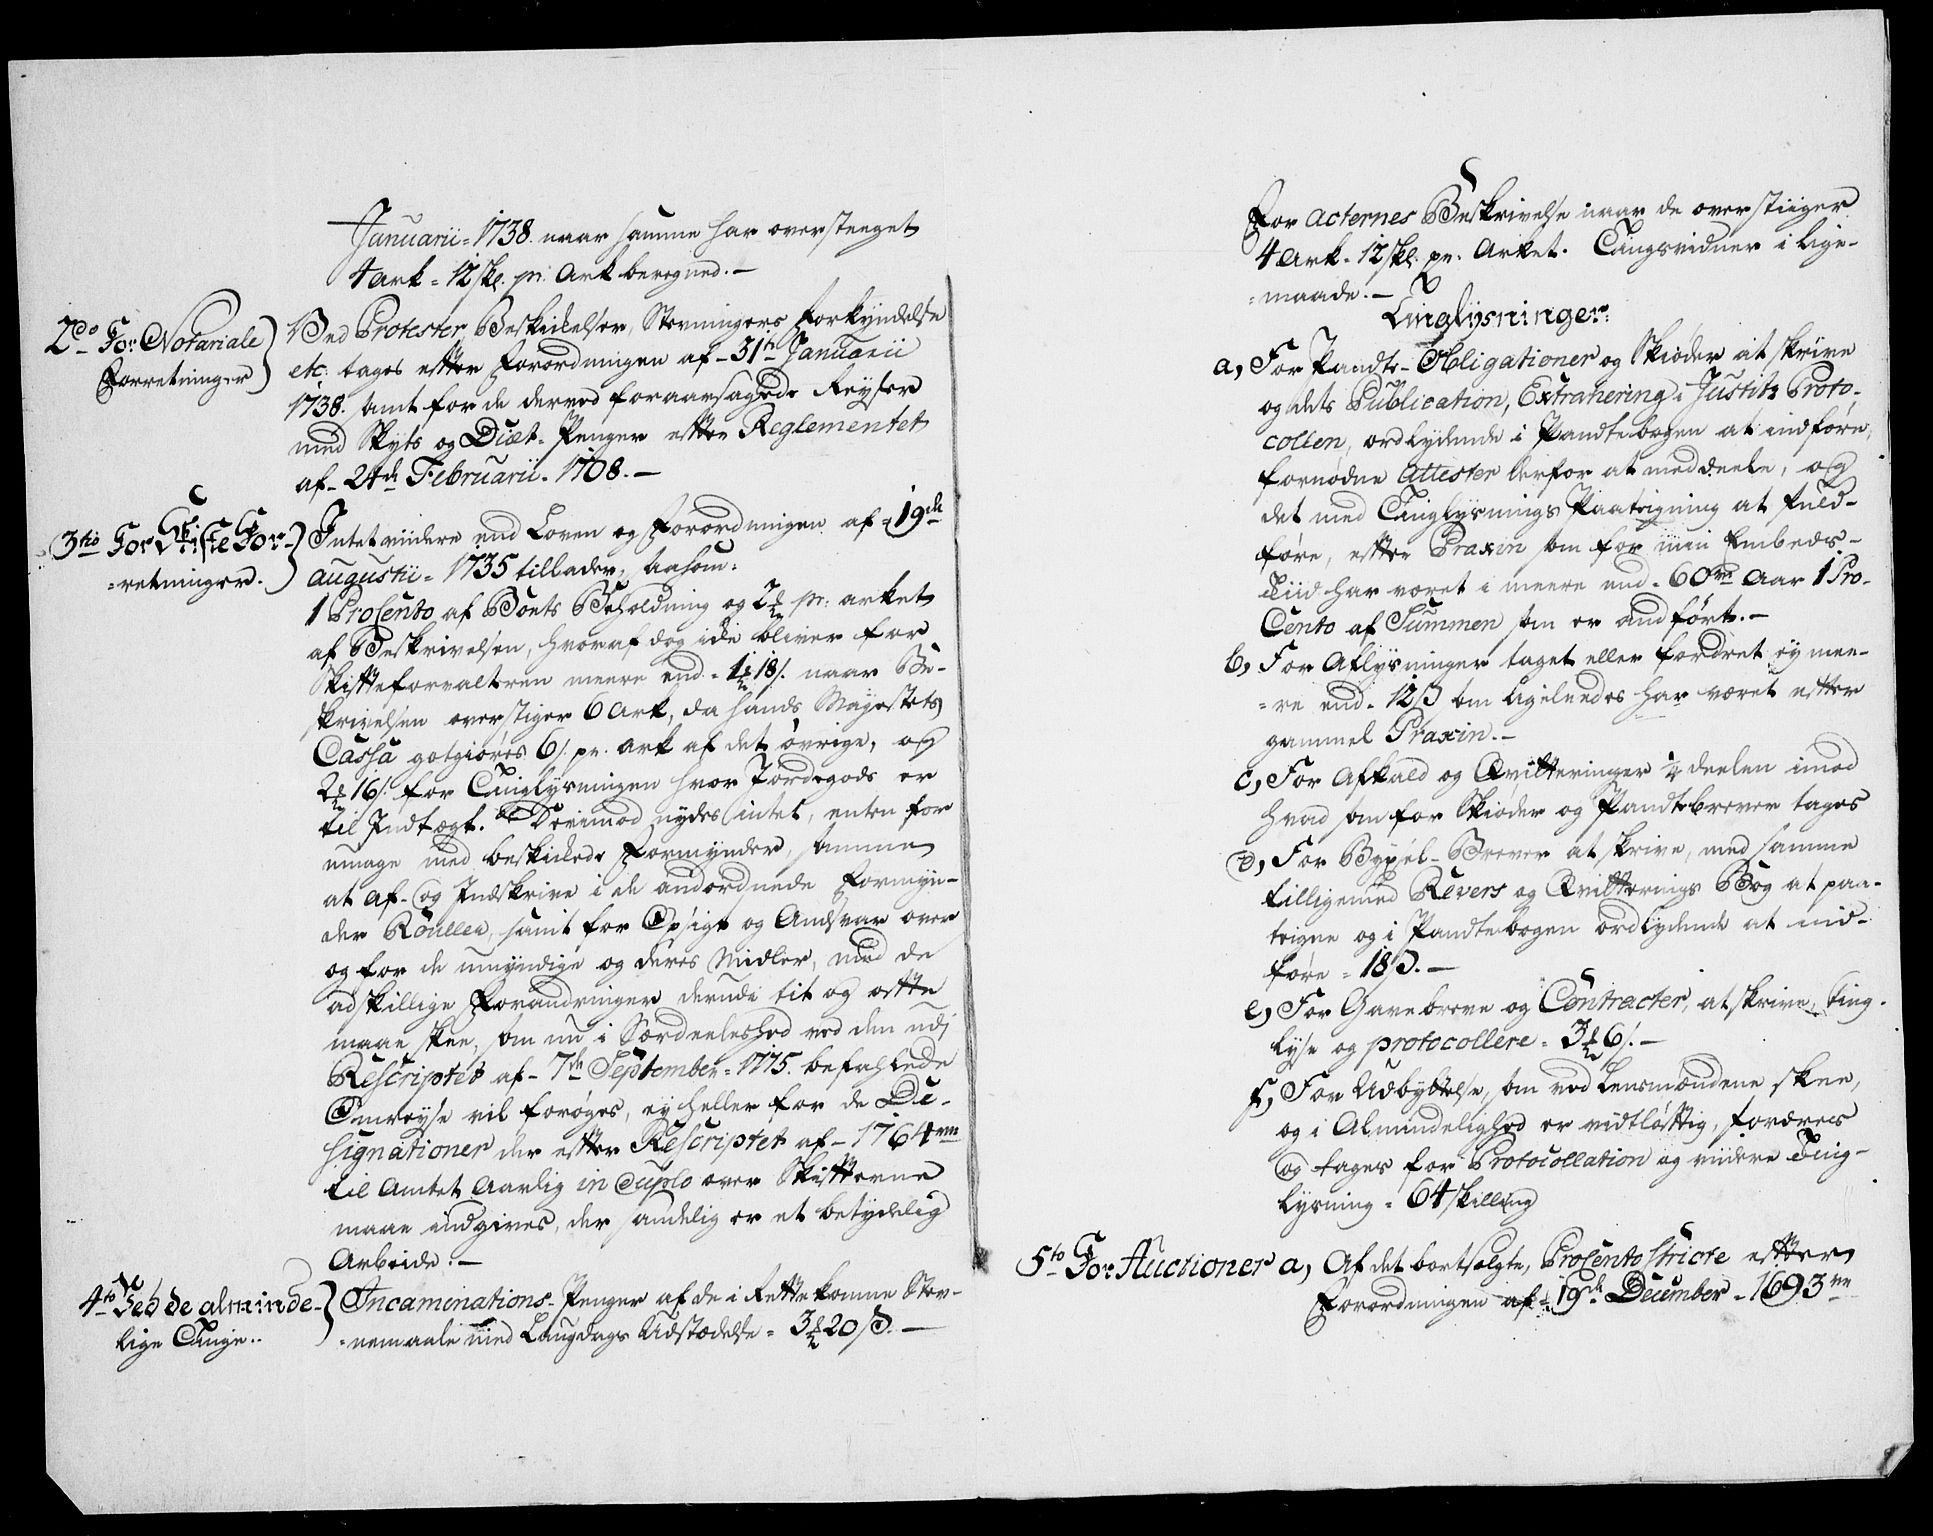 Januarii = 1738. naar samme har oversteeget
4 Ark = 12 skl. pr. Ark beregned. —
2do For Notariale
Forretninger
Ved Protester, Beskikkelser, Stevningers Forkyndelse
etc: tages efter Forordningen af - 31te Januarii
1738. samt for de derved foraarsagede Reyser
med Skyts og Diæt-Penger efter Reglementet
af - 24de Februarii - 1708. —
3tio For Skifte For-
=retninger.
Intet viidere end Loven og Forordningen af - 19de
Augustii = 1735 tillader, saasom:
1 ProCento af Boets Beholdning og 2 pr: arket
af Beskrivelsen, hvoraf dog icke bliver for
Skifteforvalteren meere end - 1 18/. naar Be-
skrivelsen overstiger 6 Ark, da hands Mayestets
Cassa gotgiøres 6/. pr. Ark af det øvrige, og
2 16/. for Tinglysningen hvor Jordegods er
til Indtægt. Derimod nydes intet, enten for
umage med beskickede Formynder, samme
at af- og Indskrive i de andordnede Formyn-
der Roullen, samt for Opsigt og Andsvar over
og for de umyndige og deres Midler, med de
adskillige Forandringer derudi tit og ofte
maae skee, som nu i Særdeeleshed ved den udj
Rescriptet af - 7de September = 1775. befahlede
Omreyse vil forøges, ey heller for de De-
signationer der efter Rescriptet af - 1764
til Amtet Aarlig in Duplo over Skifterne
maae indgives, der sandelig er et betydelig
Arbeide: —
4to Ved de alminde-
lige Tinge..
Incaminations-Penger af de i Rette komne Stev-
=nemaale med Laugdags Udstædelse = 3 20 ß. —
For Acternes Beskrivelse naar de overstiiger
4 Ark - 12 skl. pr. Arket. Tingsvidner i lige-
=maade. —
Tinglysninger:
a, For Pandte-Obligationer og Skiøder at skrive
og dets Publication, Extrahering i Justitz Proto-
collen, ordlydende i Pandtebogen at indføre,
fornødne Attester derfor at meddeele, og
det med Tinglysnings Paategning at fuld-
føre, efter Praxin som før min Embeds-
Tiid har været i meere end - 60 Aar 1 Pro-
Cento af Summen som er andført. —
b, For Aflysninger taget eller fordret ey mee-
=re end - 12 ß som ligeledes har været efter
gammel Praxin. —
c, For Afkald og Qvitteringer ¼ deelen imod
hvad som for Skiøder og Pandtebrever tages
d, For Bøxel-Brever at skrive, med samme
tilligemed Revers og Qvitterings Bog at paa-
teigne og i Pandtebogen ordlydende at ind-
føre = 18 ß. —
e, For Gavebreve og Contracter, at skrive, ting-
lyse og protocollere = 3 6/. —
f, For Udbyttelse, som ved Lensmændene skee,
og i Almindelighed er vidtløftig, fordres
og tages for Protocollation og viidere Ting-
lysning = 64 skilling
5to For Auctioner a, Af det bortsolgte, ProCento stricte efter
Forordningen af - 19de December - 1693